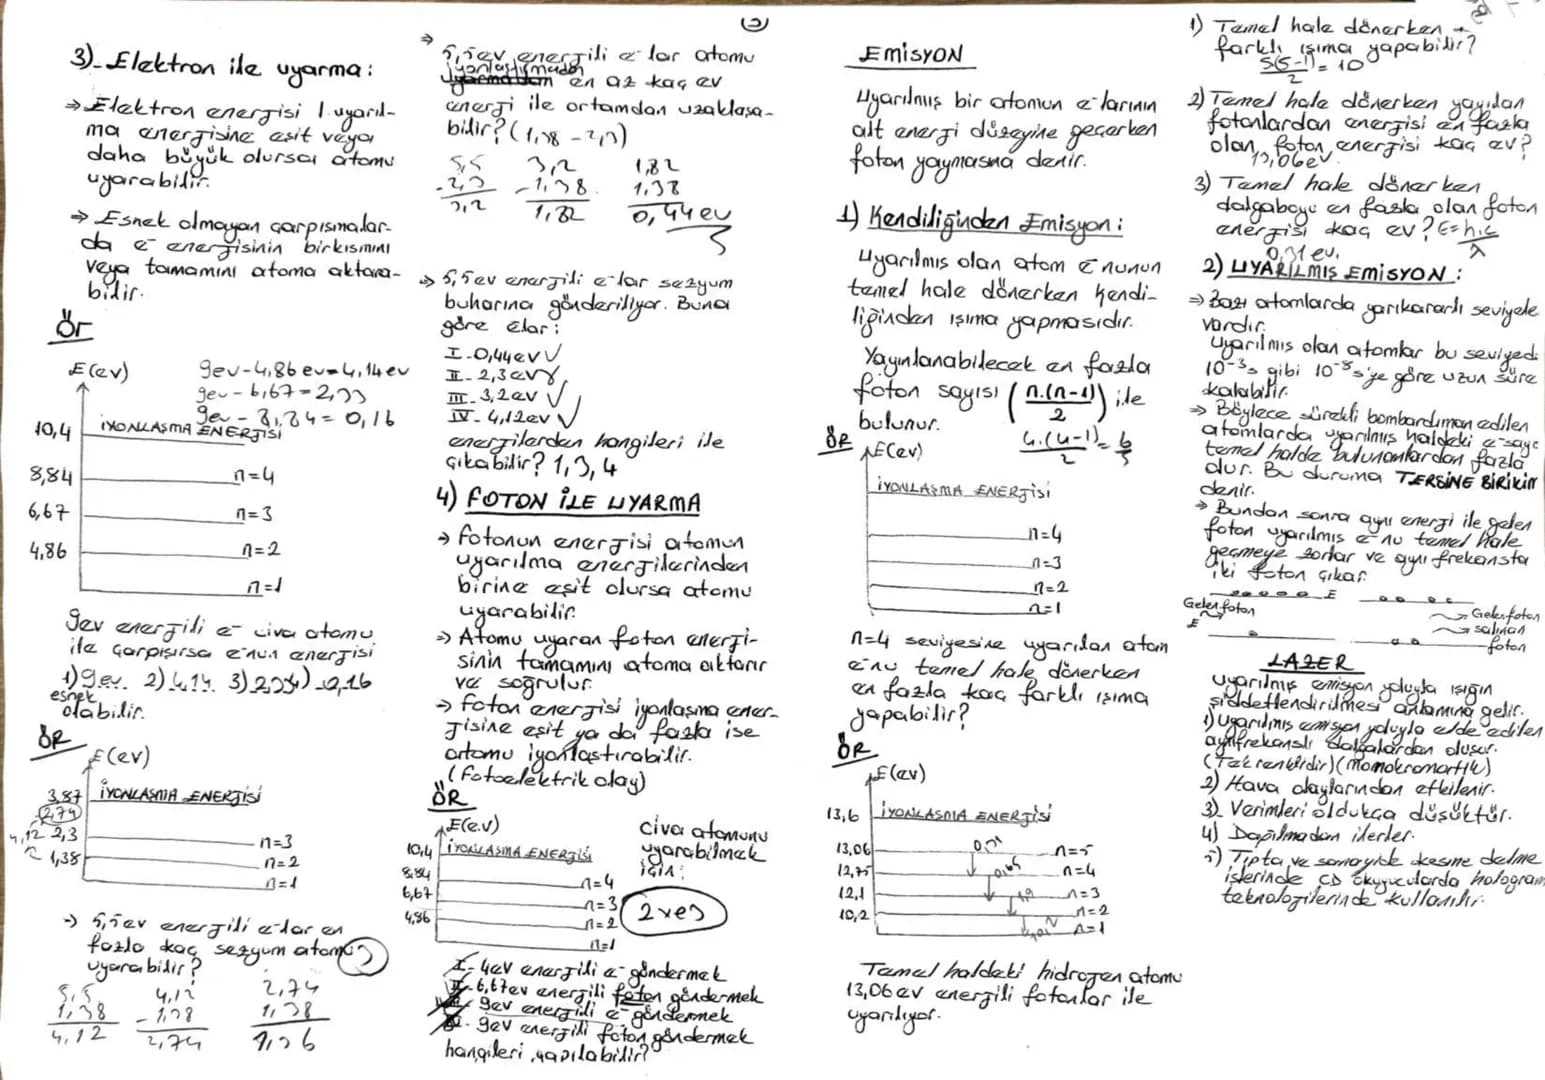 3)_ Elektron ile uyarma:
⇒ Elektron enerjisi 1. uyarıl-
ma enerjisine eşit veya
daha büyük olursa atomu
uyarabilir.
⇒ Esnek olmayan çarpışmalar-
da e⁻ enerjisinin bir kısmını
veya tamamını atoma aktara-
bilir.
Ör
E(ev)
9ev-4,86ev=4,14ev
9ev-6,67=2,33
9ev-8,84=0,16
10,4 İYONLAŞMA ENERJİSİ
8,84 n=4
6,67 n=3
4,86 n=2
n=1
9ev enerjili e⁻ civa atomu
ile çarpışırsa e⁻nun enerjisi
1) 9ev. 2) 4,14. 3) 2,33 4) 0,16
esnek
olabilir.
ÖR
E(ev)
3,87 İYONLAŞMA ENERJİSİ
2,74
4,12 2,3 n=3
1,38 n=2
n=1
→ 5,5ev enerjili e⁻lar en
fazla kaç sezyum atomu 3
uyarabilir?
5,5 4,12 2,74
1,38 -1,38 1,38
4,12 2,74 1,36
2
⇒ 5,5ev enerjili e⁻lar atomu
iyonlaştırmadan
en az kaç ev
enerji ile ortamdan uzaklaşa-
bilir? (1,38 - 2,3)
5,5 3,2 1,82
-2,3 -1,38 1,38
3,2 1,82 0,44ev
⇒ 5,5ev enerjili e⁻lar sezyum
buharına gönderiliyor. Buna
göre elar:
I_0,44ev ✓
II_2,3ev
III_3,2ev ✓
IV_4,12ev ✓
enerjilerden hangileri ile
çıkabilir? 1,3,4
4) FOTON İLE UYARMA
→ Fotonun enerjisi atomun
uyarılma enerjilerinden
birine eşit olursa atomu
uyarabilir.
⇒ Atomu uyaran foton enerji-
sinin tamamını atoma aktarır
ve soğrulur.
→ Foton enerjisi iyonlaşma ener-
jisine eşit ya da fazla ise
atomu iyonlaştırabilir.
(fotoelektrik olay)
ÖR
E(e.v)
10,4 İYONLAŞMA ENERJİSİ
8,84 n=4
6,67 n=3
4,86 n=2
n=1
Civa atomunu
uyarabilmek
için:
I_4eV enerjili e⁻ göndermek
II_6,67ev enerjili foton göndermek
9ev enerjili e⁻ göndermek
9ev enerjili foton göndermek
hangileri yapılabilir?
EMİSYON
Uyarılmış bir atomun e⁻larının
alt enerji düzeyine geçerken
foton yaymasına denir.
1) Kendiliğinden Emisyon:
Uyarılmış olan atom e⁻nunun
temel hale dönerken kendi-
liğinden ışıma yapmasıdır.
Yayınlanabilecek en fazla
foton sayısı (n.(n-1)/2) ile
bulunur.
4.(4-1)/2 = 6
ÖR
E(ev)
İYONLAŞMA ENERJİSİ
n=4
n=3
n=2
n=1
n=4 seviyesine uyarılan atom
e⁻nu temel hale dönerken
en fazla kaç farklı ışıma
yapabilir?
ÖR
E(ev)
13,6 İYONLAŞMA ENERJİSİ
13,06 0,31 n=5
12,75 0,65 n=4
12,1 1,9 n=3
10,2 n=2
n=1
Temel haldeki hidrojen atomu
13,06 ev enerjili fotonlar ile
uyarılıyor.
1) Temel hale dönerken
farklı ışıma yapabilir?
5(5-1)/2 = 10
2) Temel hale dönerken yayılan
fotonlardan enerjisi en fazla
olan foton enerjisi kaç ev?
13,06ev.
3) Temel hale dönerken
dalgaboyu en fazla olan foton
enerjisi kaç ev? E=h.c/λ
0,31ev.
2) UYARILMIŞ EMİSYON:
⇒ Bazı atomlarda yarıkararlı seviyele
vardır.
Uyarılmış olan atomlar bu seviyede
10⁻³s gibi 10⁻⁸s'ye göre uzun süre
kalabilir.
⇒ Böylece sürekli bombardıman edilen
atomlarda uyarılmış haldeki e⁻ sayı
temel halde bulunanlardan fazla
olur. Bu duruma TERSİNE BİRİKİM
denir.
→ Bundan sonra aynı enerji ile gelen
foton uyarılmış e⁻nu temel hale
geçmeye zorlar ve aynı frekansta
iki foton çıkar.
E
Gelen foton
E
Gelen foton
salınan
foton
LAZER
Uyarılmış emisyon yoluyla ışığın
şiddetlendirilmesi anlamına gelir.
1) Uyarılmış emisyon yoluyla elde edilen
aynı frekanslı dalgalardan oluşur.
(Tek renklidir) (Momokromartik)
2) Hava olaylarından etkilenir.
3) Verimleri oldukça düşüktür.
4) Dağılmadan ilerler.
5) Tıpta ve sanayide kesme delme
işlerinde CD okuyucularda hologram
teknolojilerinde kullanılır.